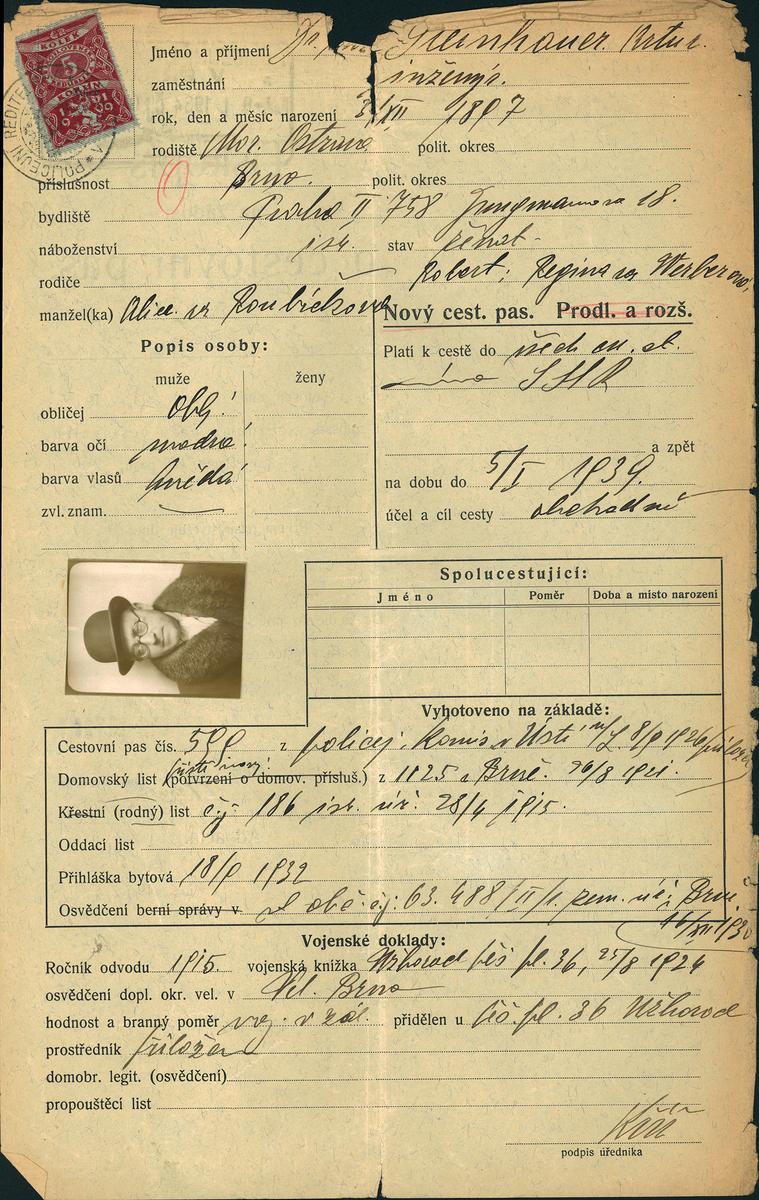 KOLEK
5
KORUN
POLICEJNÍ ŘEDITE
Jméno a příjmení Steinhauer Artur.
zaměstnání inženýr.
rok, den a měsíc narození 3/XII 1897
rodiště Mor. Ostrava polit. okres
příslušnost Brno. polit. okres
bydliště Praha II 758 Jungmannova 18.
náboženství isr. stav ženat
rodiče Robert, Regina roz Werberova,
manžel(ka) Alice roz Roubíčková
Nový cest. pas. Prodl. a rozš.
Popis osoby:
Platí k cestě do všech
SSSR
muže ženy
obličej obl.
barva očí modrá
barva vlasů hnědá
zvl. znam.
a zpět
na dobu do 5/I 1939.
účel a cíl cesty obchodní
Spolucestující:
Jméno Poměr Doba a místo narození
Vyhotoveno na základě:
Cestovní pas čís. z policej. Komis v Ústí n/L
Domovský list (potvrzení o domov. přísluš.) z 1125 v Brně. 26/8 1921.
Křestní (rodný) list čj 186 isr. úř. 28/4 1915.
Oddací list
Přihláška bytová 1932
Osvědčení berní správy v. čj. 63.488/II/1. zem. úř. Brno
16/XII 1930
Vojenské doklady:
Ročník odvodu 1915. vojenská knížka Užhorod pěš pl. 36, 25/8 1924
osvědčení dopl. okr. vel. v Vel. Brno
hodnost a branný poměr voj. v zál. přidělen u pěš. pl. 36 Užhorod
prostředník
domobr. legit. (osvědčení)
propouštěcí list
podpis úředníka